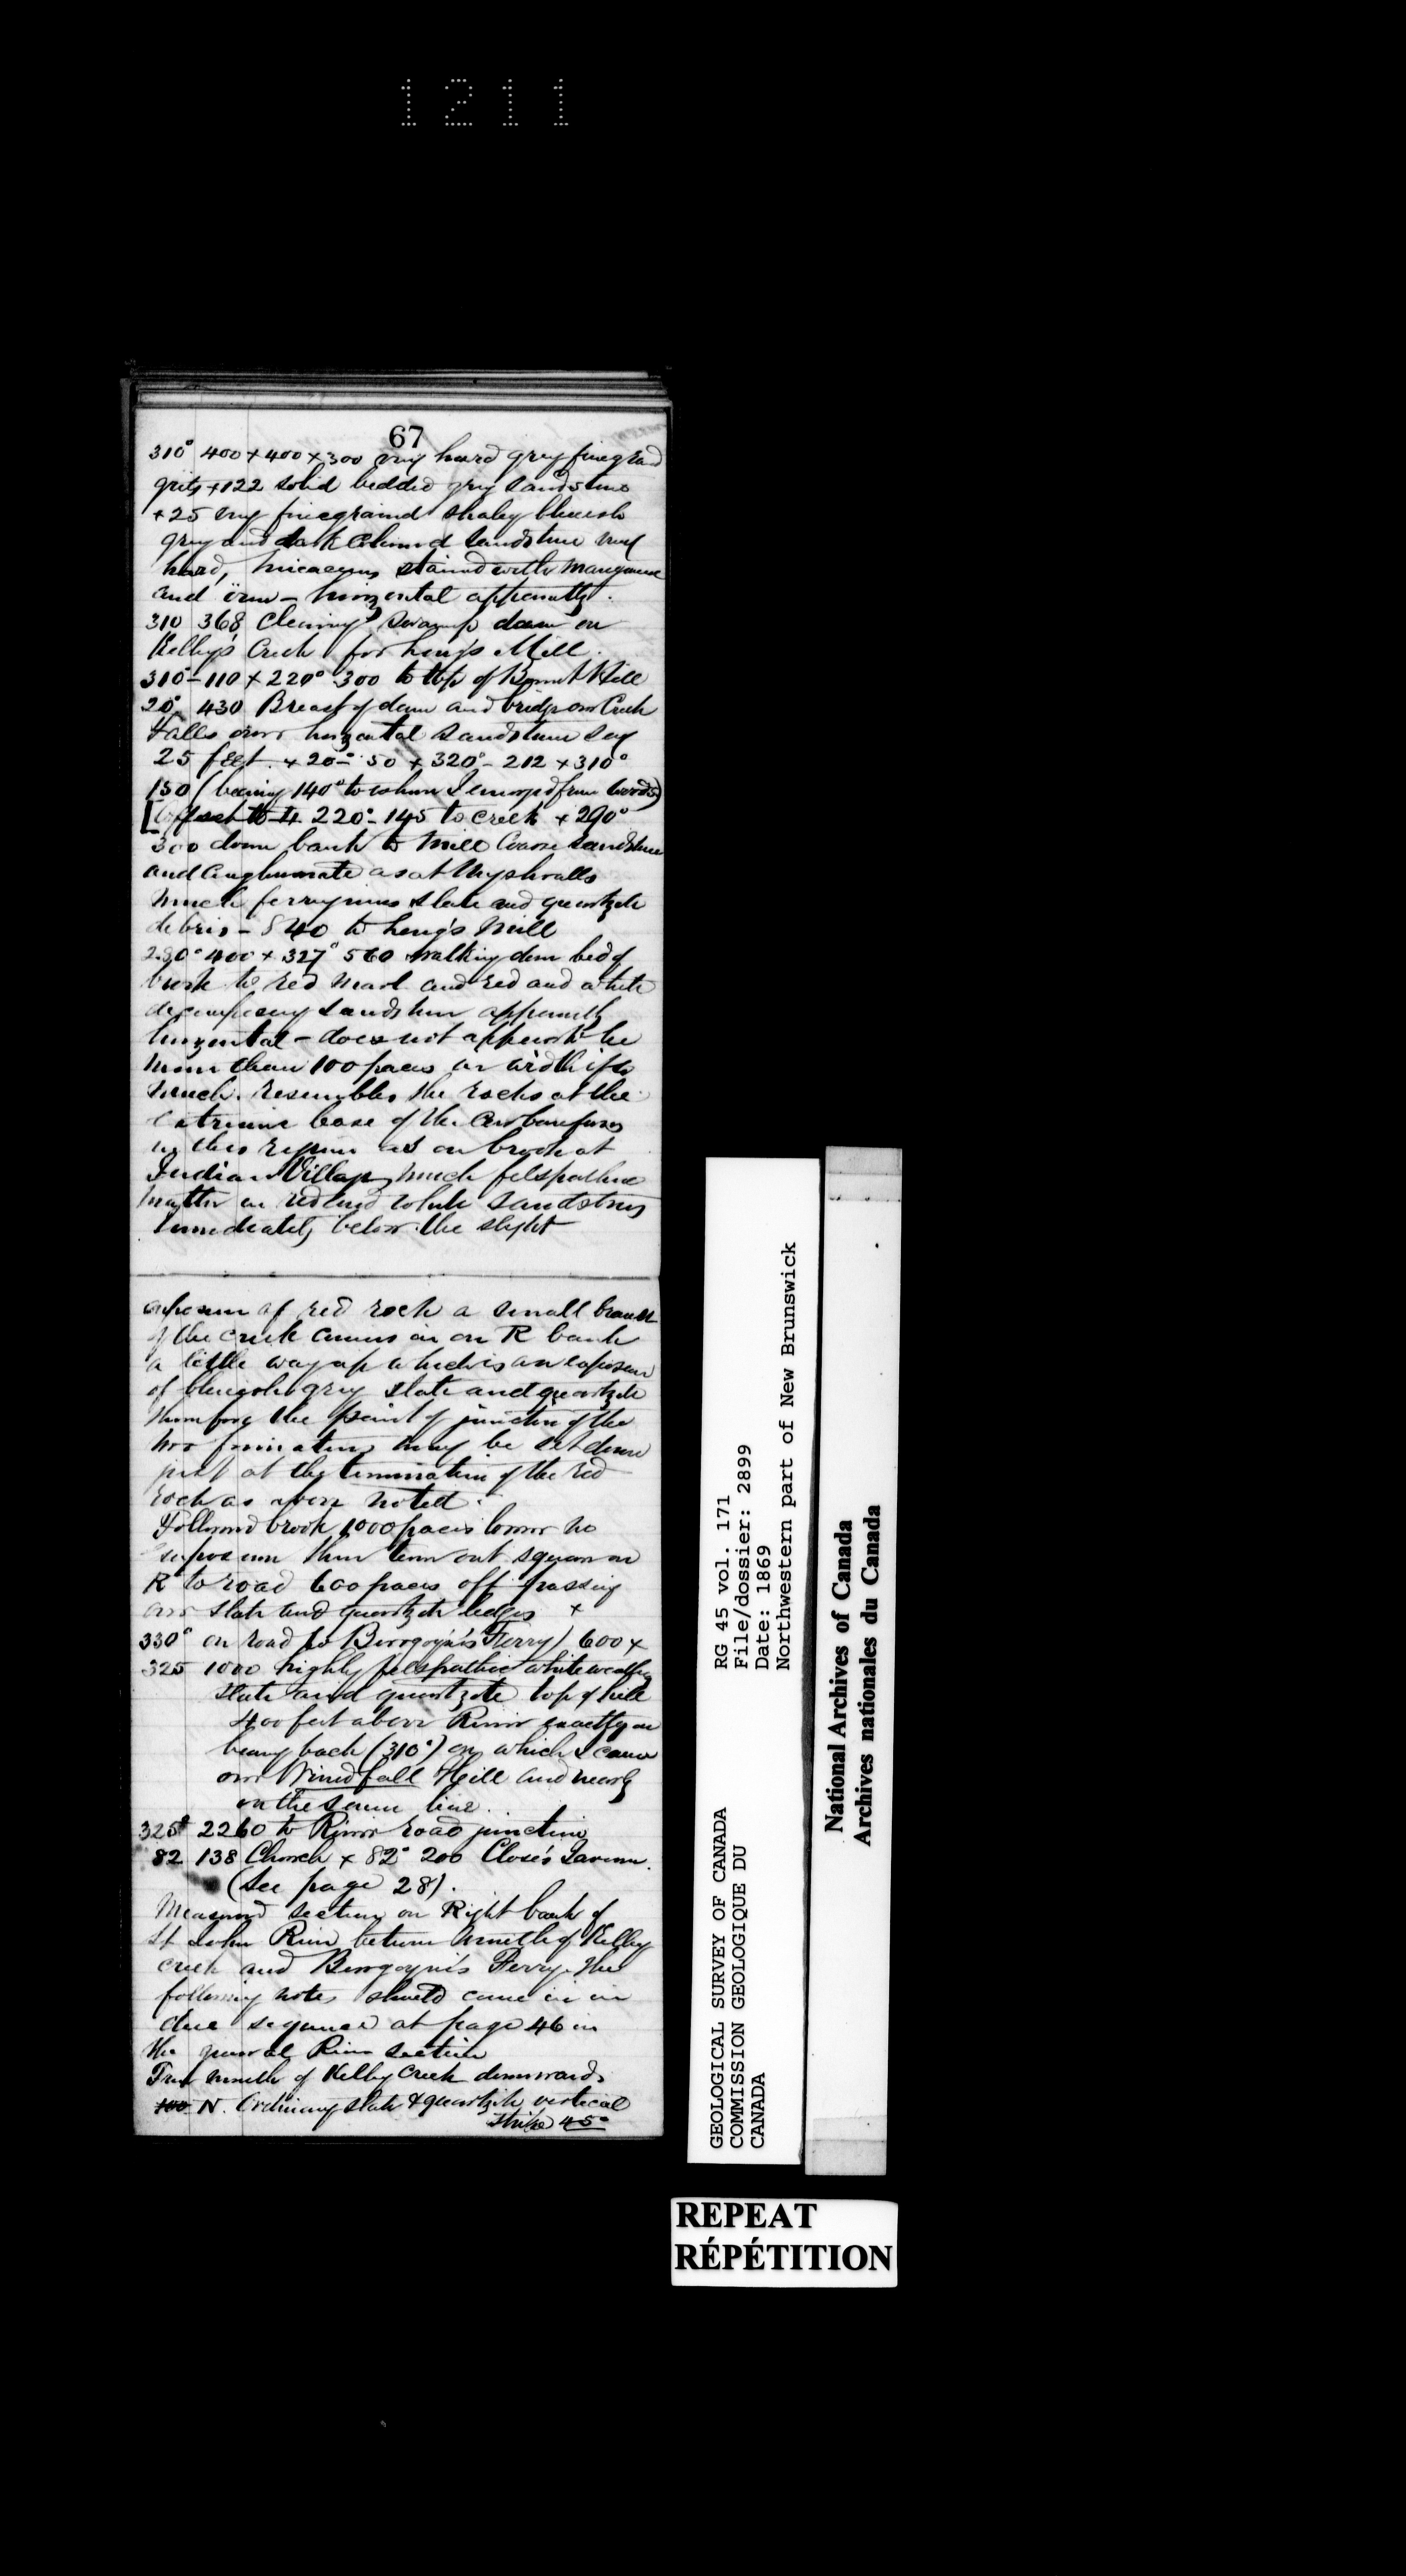 1211
67
310° 400 + 400 + 300 very hard grey finegrd
grits + 122 solid bedded grey sandstone
+ 25 very finegrained shaley blueish
grey and dark coloured sandstone very
hard, micaceous stained with manganese
and iron - horizontal apparently.
310 368 clearing swamp dam on
Kelly's Creek for Long's Mill.
310°-110 + 220° 300 to top of Burnt Hill
20° 430 Breast of dam and bridge over Creek
Falls over horizontal sandstone say
25 feet. + 20°- 50 + 320°- 212 + 310°
150 (bearing 140° to where I emerged from woods)
[Offset to 220°- 145 to creek + 290°
300 down bank to mill Coarse sandstone
and conglomerate as at
much ferruginous slate and quartzite
debris - 840 to Long's Mill
280° 400 + 327° 560 walking down bed of
brook to red marl and red and white
decomposing sandstone apparently
horizontal - does not appear to be
more than 100 paces in width if so
much. Resembles the rocks at the
extreme base of the Carboniferous
in this region as on brook at
Indian Village, much felspathic
matter in red and white sandstones
Immediately below the slight
exposure of red rock a small branch
of the creek comes in on R bank
a little way up which is an exposure
of blueish grey slate and quartzite
therefore the point of junction of the
two formations may be set down
just at the termination of the red
rock as above noted.
Followed brook 1000 paces lower no
exposure then turn out square on
R to road 600 paces off passing
over slate and quartzite ledges +
330° on road to Burgoyne's Ferry) 600 +
325 1000 highly felspathic white weathg
slate and quartzite top of hill
400 feet above River exactly on
bearing back (310°) on which I came
over Windfall Hill and nearly
on the same line.
325° 2260 to River road junction
82 138 Church + 82° 200 Close's Tavern.
(See page 28).
Measured section on Right bank of
St John River between mouth of Kelley
creek and Burgoyne's Ferry. The
following notes should come in in
due sequence at page 46 in
the general River section
From mouth of Kelley Creek downwards
100 N. Ordinary slate & quartzite vertical
strike 45°
GEOLOGICAL SURVEY OF CANADA
COMMISSION GEOLOGIQUE DU
CANADA
RG 45 vol. 171
File/dossier: 2899
Date: 1869
Northwestern part of New Brunswick
National Archives of Canada
Archives nationales du Canada
REPEAT
RÉPÉTITION